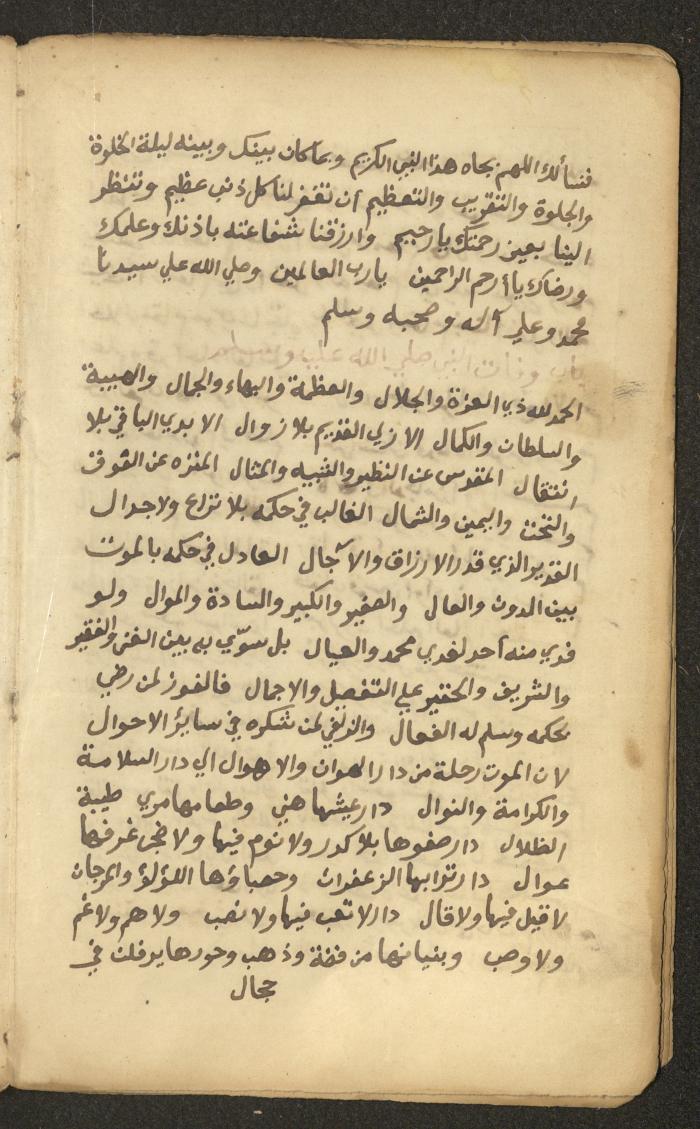 فنسألك اللهم بجاه هذا النبي الكريم وبما كان بينك وبينه ليلة الخلوة
والجلوة والتقريب والتعظيم ان تغفر لنا كل ذنب عظيم وتنظر
الينا بعين رحمتك يا رحيم وارزقنا شفاعته باذنك وعلمك
ورضاك يا أرحم الراحمين يا رب العالمين وصلي الله علي سيدنا
محمد وعلي آله وصحبه وسلم
باب وفات النبي صلي الله عليه وسلم
الحمد لله ذي العزة والجلال والعظمة والبهاء والجمال والهيبة
والسلطان والكمال الازلي القديم بلا زوال الابدي الباقي بلا
انتقال المقدس عن النظير والشبيه والمثال المنزه عن الفوق
والتحت واليمين والشمال الغالب في حكمه بلا نزاع ولا جدال
القدير الذي قدر الارزاق والآجال العادل في حكمه بالموت
بين الدون والعال والصغير والكبير والسادة والموال ولو
فدي منه أحد لفدي محمد والعيال بل سوّي به بين الغني والفقير
والشريف والحقير علي التفصيل والاجمال فالفوز لمن رضي
بحكمه وسلم له الفعال والزلفي لمن شكره في سائر الاحوال
لان الموت رحلة من دار الهوان والاهوال الي دار السلامة
والكرامة والنوال دار عيشها هني وطعامها مري طيبة
الظلال دار صفوها بلا كدر ولا نوم فيها ولا ضجى غرفها
عوال دار ترابها الزعفران وحصباؤها اللؤلؤ والمرجان
لا قيل فيها ولا قال دار لا تعب فيها ولا نصب ولا هم ولا غم
ولا وصب وبنيانها من فضة وذهب وحورها يرفلن في
حجال